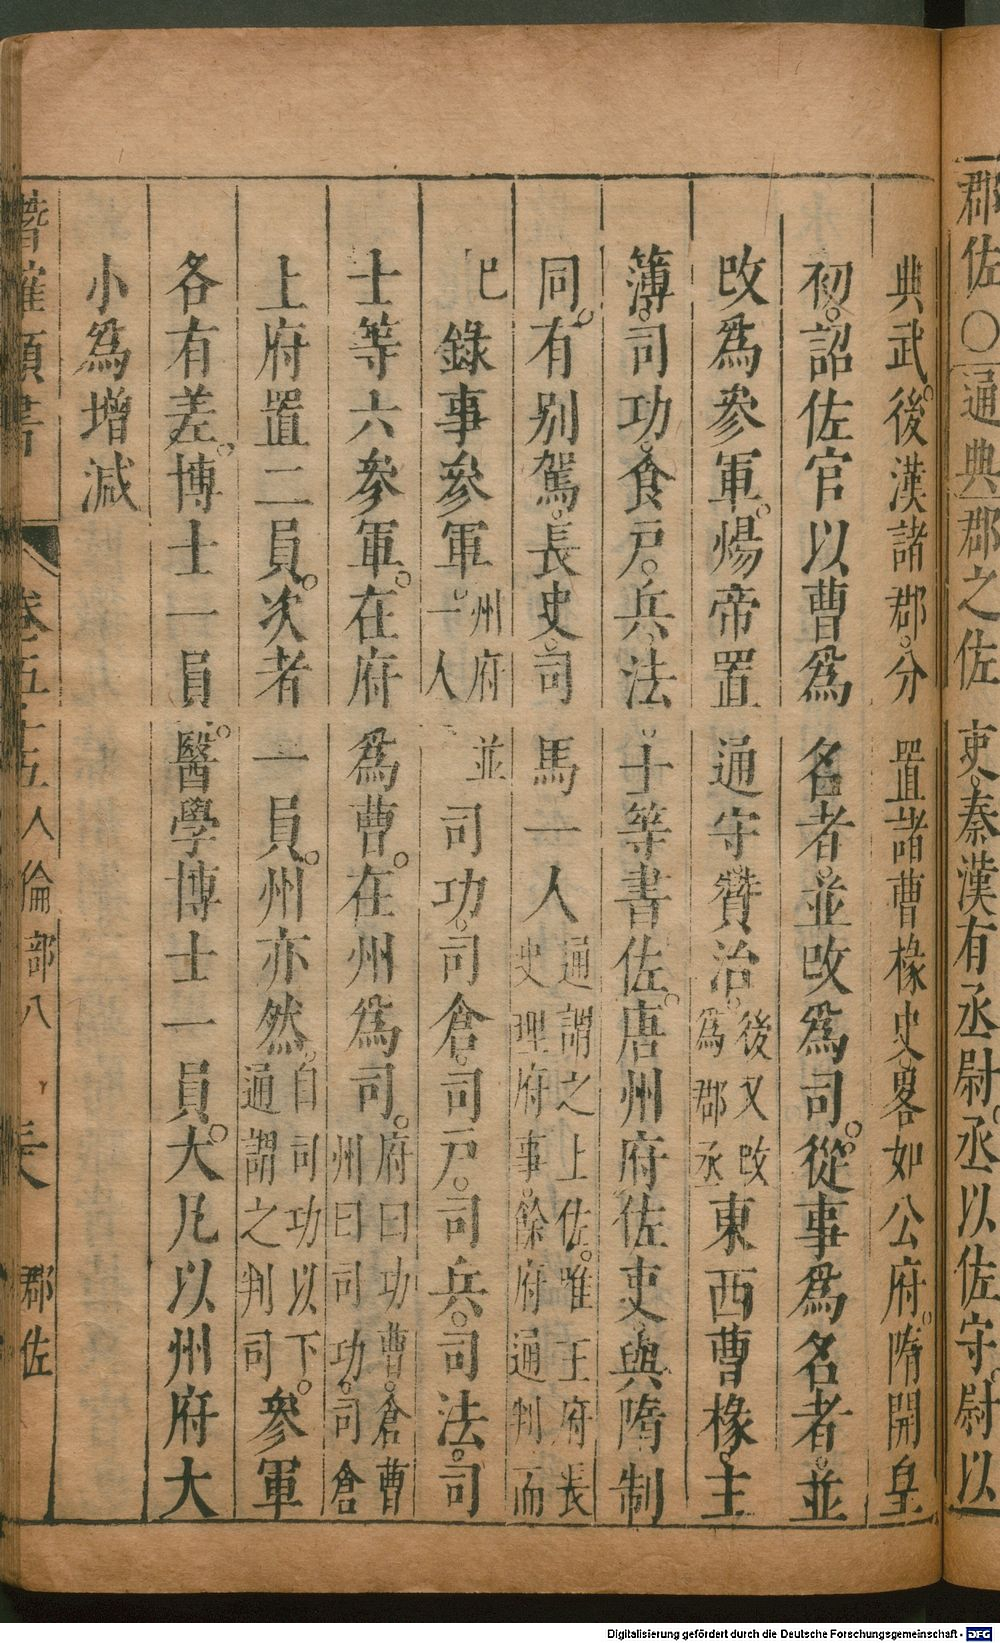 郡佐〇通典郡之佐吏。秦漢有丞尉。丞以佐守。尉以
典武。後漢諸郡。分置諸曹掾史。畧如公府。隋開皇
初。詔佐官以曹爲名者。並改爲司。從事爲名者。並
改爲參軍。煬帝置通守贊治。後又改爲郡丞東西曹掾。主
簿。司功。倉戸。兵。法。士等書佐。唐州府佐吏。與隋制
同。有别駕。長史。司馬一人通謂之上佐。唯王府長史理府事。餘府通判而
已錄事參軍。州府並一人司功。司倉。司戸。司兵。司法。司
士等六參軍。在府爲曹。在州爲司。府曰功曹。倉曹州曰司功。司倉
上府置二員。次者一員。州亦然。自司功以下。通謂之判司參軍
各有差。博士一員。醫學博士一員。大凡以州府大
小爲增減
潛確類書 卷五十五 人倫部八 郡佐
Digitalisierung gefördert durch die Deutsche Forschungsgemeinschaft - DFG